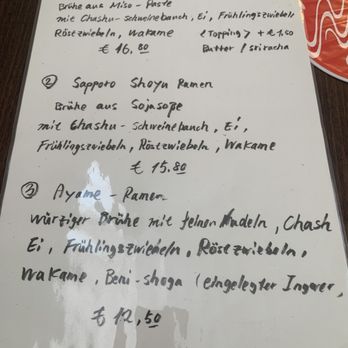 Brühe aus Miso-Paste
mit Chashu-Schweinebauch, Ei, Frühlingszwiebeln
Röstzwiebeln, Wakame (Topping) + €1,50
€ 16,80 Butter / sriracha
② Sapporo Shoyu Ramen
Brühe aus Sojasoße
mit Chashu-Schweinebauch, Ei,
Frühlingszwiebeln, Röstzwiebeln, Wakame
€ 15.80
③ Ayame-Ramen
Würziger Brühe mit feinen Nudeln, Chash
Ei, Frühlingszwiebeln, Röstzwiebeln,
Wakame, Beni-shoga (eingelegter Ingwer,
€ 12,50